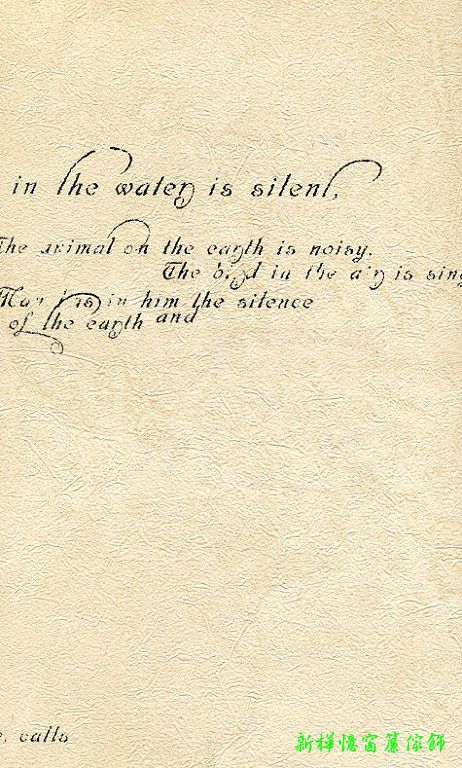 in the water is silent,
The animal on the earth is noisy.
The bird in the air is sing
Man has in him the silence
of the earth and
, calls
新樣憶窗簾傢飾